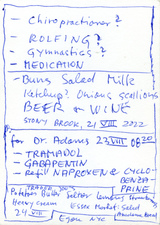 - Chiropractioner?
- ROLFING?
- GYMNASTICS?
- MEDICATION
- Buns Salad Milk
Ketchup? Onions scallions
BEER & WINE
STONY BROOK, 21 VIII 2022
for Dr. Adams 22 VIII 08 20
- TRAMADOL
- GABAPENTIN
- Refill NAPROXEN & CYCLO-
BENZA-
PRINE
Potatoes Seltzer
Heavy Cream Market Salad
24 VIII NYC